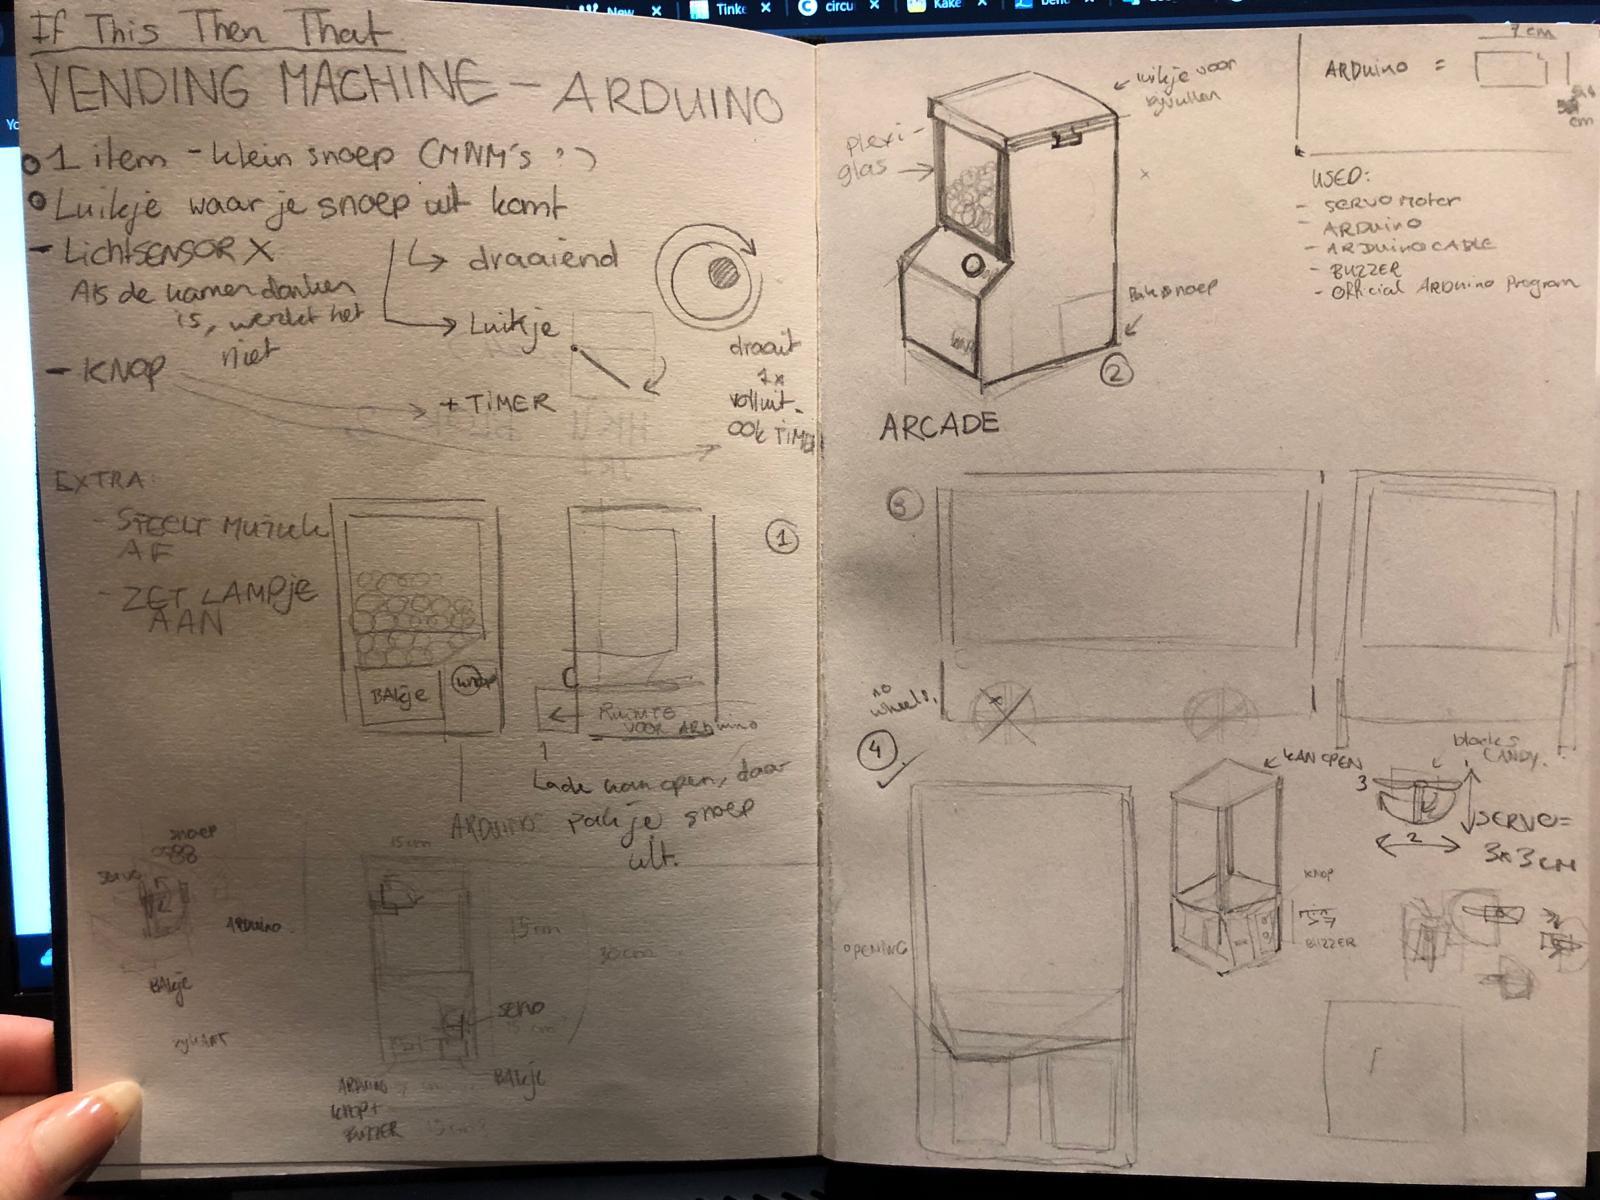 New
Tink
circu
Kake
If This Then That
VENDING MACHINE - ARDUINO
1 item - klein snoep (MNM's :)
Luikje waar je snoep uit komt
- LICHTSENSOR X
Als de kamer donker
is, werkt het
niet
- KNOP
draaiend
Luikje
+ TIMER
draait
1x
volluit.
OOK TIMER
EXTRA:
- STEELT MUZIEK
AF
- ZET LAMPJE
AAN
1
BAKje
knop
RUIMTE
VOOR ARDUINO
Lade kan open, daar
pak je snoep
uit.
ARDUINO
15 cm
snoep
servo
ARDUINO
BAKje
15 cm
30 cm
servo
15 cm
BAKje
ARDUINO
KNOP+
BUZZER
luikje voor
bijvullen
plexi-
glas
Bak snoep
2
ARCADE
7 cm
ARDUINO =
cm
USED:
- SERVO MOTOR
- ARDUINO
- ARDUINO CABLE
- BUZZER
- Official ARDUINO Program
3
no
wheels.
4
OPENING
KAN OPEN
KNOP
BUZZER
blocks
CANDY.
3
2
SERVO=
3x3 cm